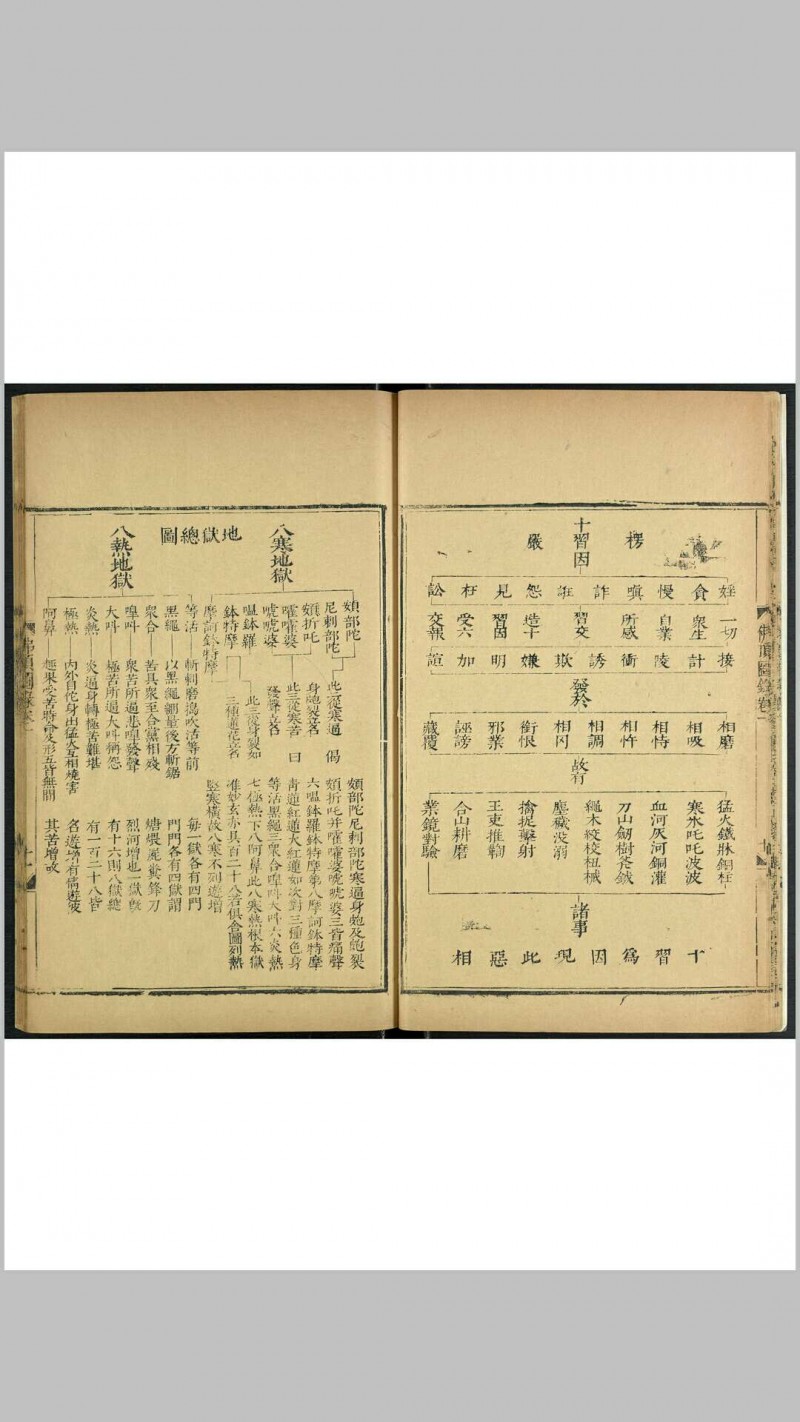 楞嚴
十習因
婬 貪 慢 嗔 詐 誑 怨 見 枉 訟
一切 眾生 自業 所感 習交 造十 習因 受六 交報
接 計 陵 衝 誘 欺 嫌 明 加 諠
發於
相磨 相吸 相恃 相忤 相調 相罔 銜恨 邪業 誣謗 藏覆
故有
猛火鐵牀銅柱
寒氷吒吒波波
血河灰河銅灌
刀山劒樹
繩木絞校杻械
塵
擒捉擊射
王吏推鞫
合山耕磨
業鏡對驗
諸事
十習為因現此惡相
地獄總圖
八寒地獄
頞部陀
尼剌部陀
此二從寒逼身皰裂立名
頞折吒
嚯嚯婆
唬唬婆
此三從寒苦發聲立名
嗢鉢羅
鉢特摩
摩訶鉢特摩
此三從身裂如三種蓮花立名
偈曰
頞部陀尼剌部陀寒逼身皰及皰裂
頞折吒并嚯嚯婆唬唬婆三皆痛聲
六嗢鉢羅鉢特摩第八摩訶鉢特摩
青蓮紅蓮大紅蓮如次對三種色身
等活黑繩三眾合嘷叫大叫六炎熱
七極熱下八阿鼻此八寒熱根本獄
准妙玄亦具百二十八若俱含圖列熱
豎寒橫故八寒不列遊增
八熱地獄
等活 斬刺磨搗吹活等前
黑繩 以黑繩絣量後方斬鋸
眾合 苦具眾至合黨相殘
嘷叫 眾苦所逼悲嘷發聲
大叫 極苦所逼大叫稱怨
炎熱 炎逼身轉極苦難堪
極熱 內外自佗身出猛火互相燒害
阿鼻 趣果受苦時命及形五皆無間
每一獄各有四門
門門各有四獄謂
煻煨屍糞鋒刃
烈河增也一獄旣
有十六則八獄總
有一百二十八皆
名遊增有情遊彼
其苦增故